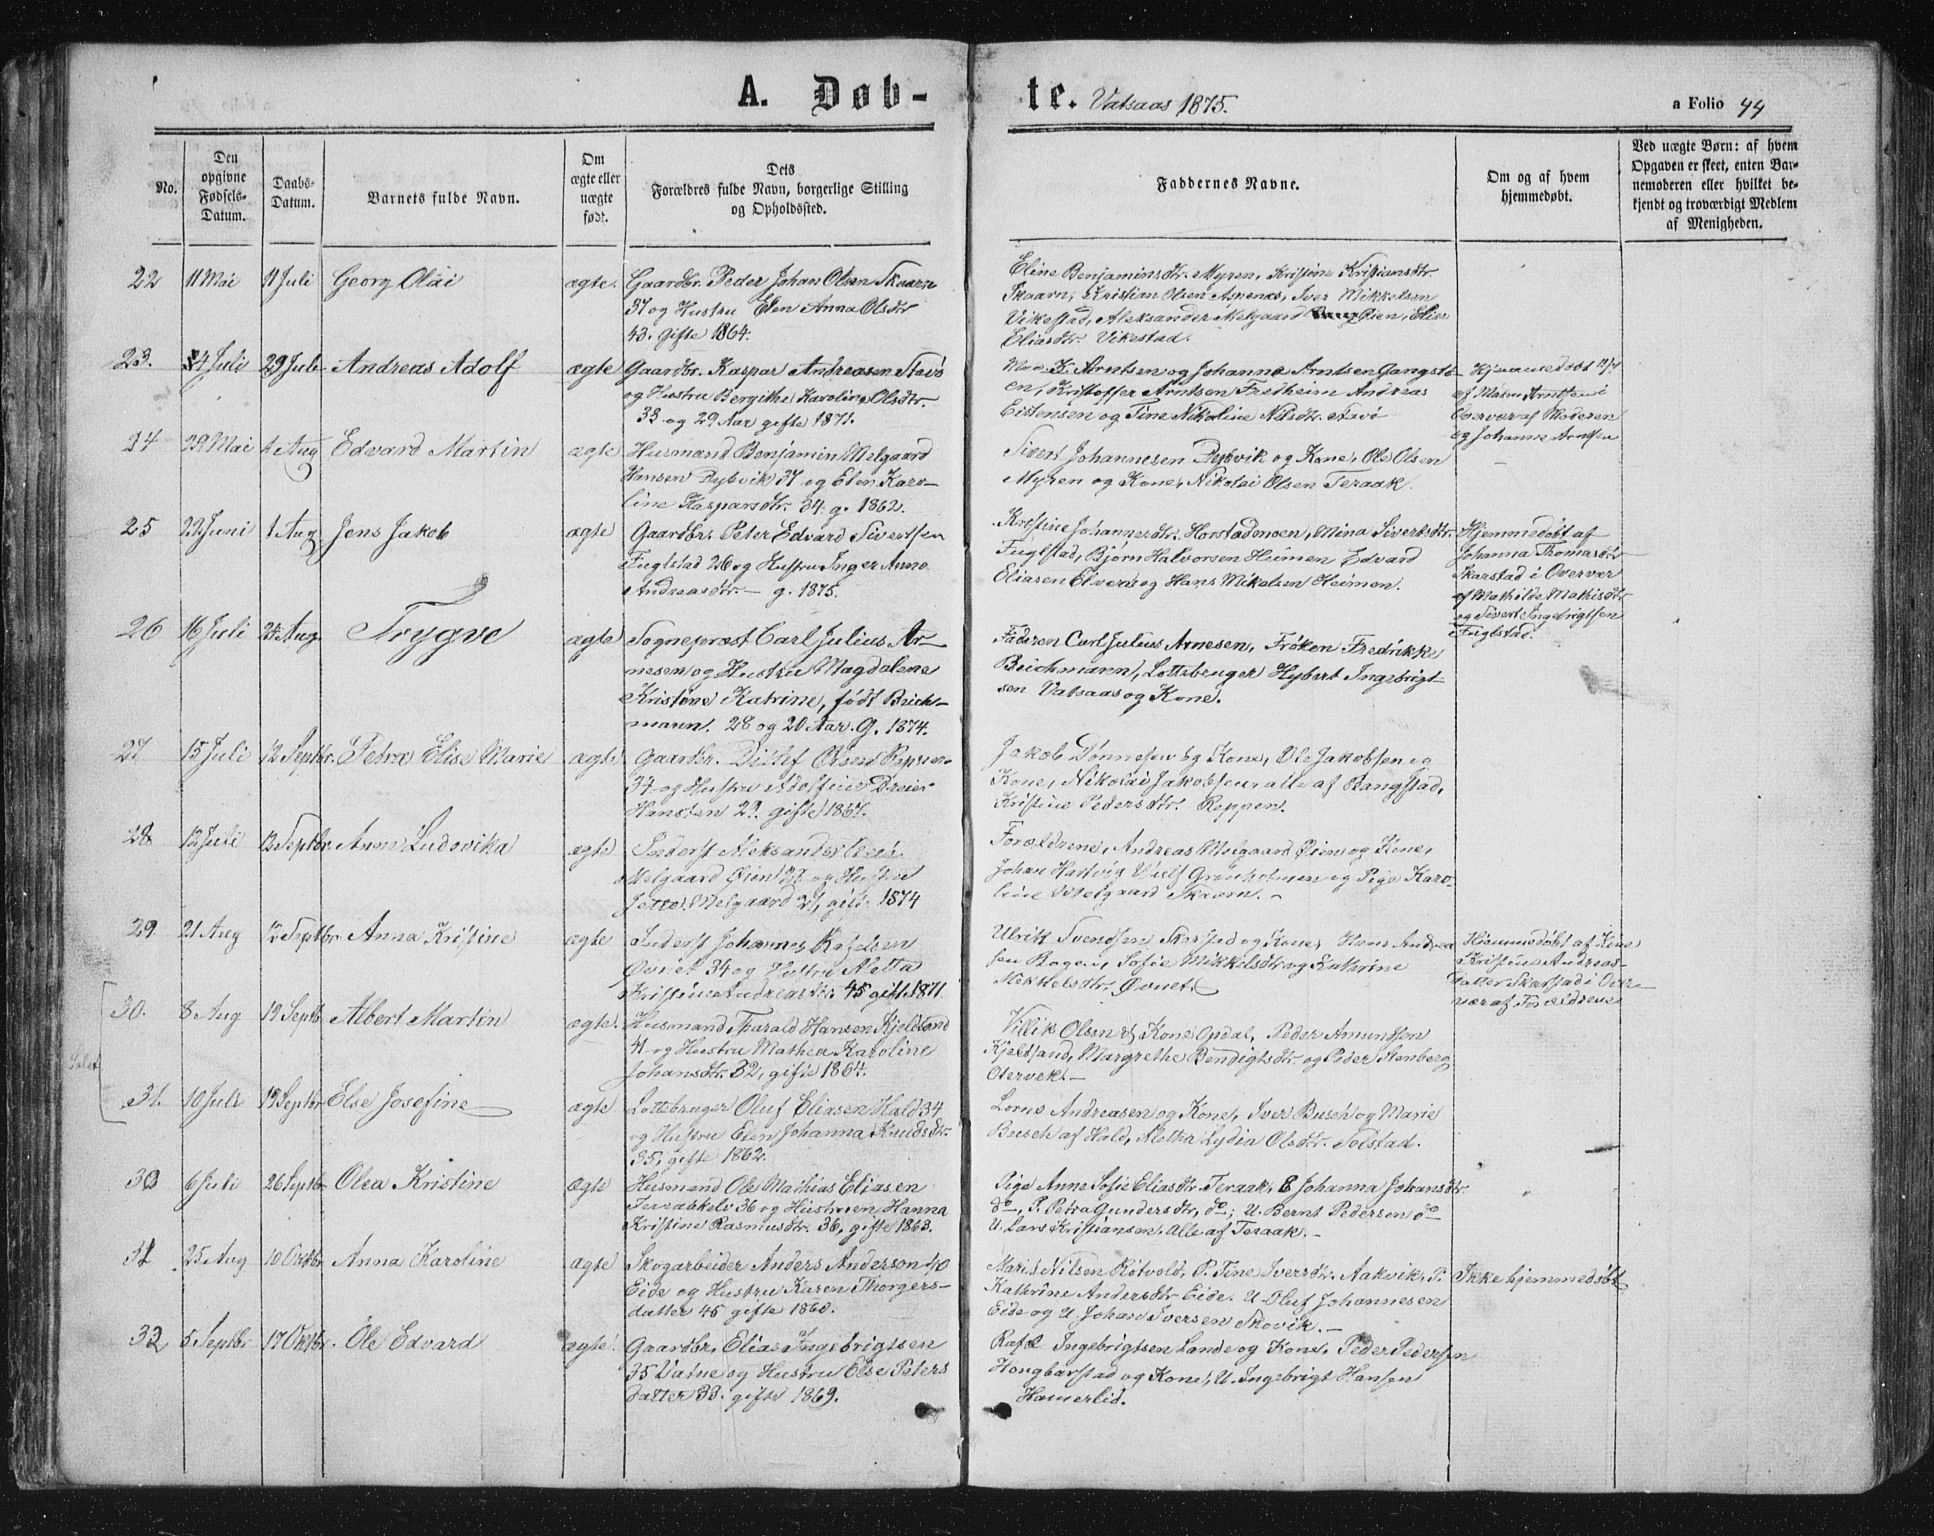 A. Døb-te. Vatsaas 1875.
a Folio 44
No.
Den opgivne Fødsels-Datum.
Daabs-Datum.
Barnets fulde Navn.
Om ægte eller uægte født.
Dets Forældres fulde Navn, borgerlige Stilling og Opholdssted.
Faddernes Navne.
Om og af hvem hjemmedøbt.
Ved uægte Børn: af hvem Opgaven er skeet, enten Barnemoderen eller hvilket bekjendt og troværdigt Medlem af Menigheden.
22 11 Mai 11 Juli Georg Olai ægte.
Gaardbr. Peder Johan Olsen Skaarn
37 og Hustru Elen Anna Olsdtr
43. gifte 1864.
Eline Benjaminsdtr. Myren, Kristine Kristiansdtr.
Skaarn, Kristian Olsen Aspenæs, Iver Mikkelsen
Vikestad, Aleksander Melgaard Øien, Elise
Eliasdtr. Vikestad.
23. 4 Juli 29 Juli Andreas Adolf ægte
Gaardbr. Kaspar Andreasen Flavø
og Hustru Bergithe Karoline Olsdtr.
33 og 29 Aar gifte 1871.
K. Arntsen og Johanna Arntsen Gangstø-
en, Kristoffer Arntsen Fredheim Andreas
Eistensen og Tine Nikoline Nilsdtr.
Hjemmedøbt
af Arntsen i
Overvær af Moderen
og Johanne Arntsen
24 29 Mai 1 Aug Edvard Martin ægte
Husmand Benjamin Melgaard
Hansen Dybvik 37 og Elen Karo-
line Kasparsdtr. 34. g. 1862.
Sivert Johannesen Dybvik og Kone, Ole Olsen
Myren og Kone, Nikolai Olsen Teraak.
25 22 Juni 1 Aug Jens Jakob ægte
Gaardbr. Peter Edvard Sivertsen
Fuglstad 26 og Hustru Inger Anna
Andreasdtr. — g. 1875.
Kristine Johannesdtr. Horstadmoen, Mina Sivertsdtr.
Fuglstad, Bjørn Halvorsen Heimen Edvard
Eliasen Elvern og Hans Mikalsen Heimen.
Hjemmedøbt af
Johanna Thomasdtr
Skarstad i Overvær
af Mathilde Mathisdtr
og Sivert Ingebrigtsen
Fuglstad.
26 16 Juli 24 Aug. Trygve ægte
Sognepræst Carl Julius Ar-
nesen og Hustru Magdalene
Kristine Katrine, født Brich-
mann. 28 og 20 Aar. G. 1874.
Faderen Carl Julius Arnesen, Frøken Fredrikke
Brichmann, Lottebruger Hybert Ingebrigt-
sen Vatsaas og Kone.
27 15 Juli 12 Septbr. Petra Elise Marie ægte
Gaardbr. Ditlef Olsen Reppen
37 og Hustru Adolfine Dreier
Hansten 29. gifte 1867.
Jakob Dønnesen og Kone, Ole Jakobsen og
Kone, Nikolai Jakobsen, alle af Rangstad,
Kristine Pedersdtr. Reppen.
28 13 Juli 12 Septbr. Anna Ludovika ægte
Inderst Aleksander
Melgaard Øien 27 og Hustru
Jette Melgaard 21, gift 1874
Forældrene, Andreas Melgaard Øien og Kone,
Johan Hartvig og Pige Karo-
line Melgaard Skaarn.
29 21 Aug 12 Septbr Anna Kristine ægte
Inderst Johannes Rafelsen
Øvnet 34 og Hustru Aletta
Kristine Andreasdtr. 45 gifte 1871
Ulrik Svendsen Skarstad og Kone, Hans Andrea
sen Bogen, Sofie Mikkelsdtr og Kathrine
Mekkelsdtr. Øvnet.
Hjemmedøbt af Kone
Kristine Andreas-
datter Skarstad i Over-
vær af Forældrene
Solst
30. 8 Aug 19 Septb. Albert Martin ægte.
Husmand Tharald Hansen Kjeldsand
41 og Hustru Mathea Karoline
Johansdtr. 32, gifte 1864.
Villik Olsen & Kone Opdal, Peder Amundsen
Kjeldsand, Margrethe Bendigtsdtr. og Peder Stenberg
Otervek.
31. 10 Juli 19 Septbr Else Josefine ægte
Lottebruger Oluf Eliasen Hald 34
og Hustru Elen Johanna Knudsdtr.
35, gifte 1862.
Lorns Andreasen og Kone, Iver Busch og Marie
Busch af Hald, Aletha Lydia Olsdtr. Solstad.
30 6 Juli 26 Septbr Olea Kristine Ægte
Husmand Ole Mathias Eliasen
Teraakelv 36 og Hustruen Hanna
Kristine Rasmusdtr. 36, gifte 1863.
Pige Anne Sofie Eliasdtr. Teraak, Johanna Johansdtr.
do, P. Petra Gundersdtr, do; U. Bernt Pedersen do
U. Lars Kristiansen. Alle af Teraak.
31 25 Aug 10 Oktbr Anna Karoline ægte
Skogarbeider Anders Anderson 40
Eide og Hustru Karen Thorgers-
datter 45 gifte 1860.
Marit Nilsen Røtvold, P. Tine Iversdtr. Aakvik, P.
Kathrine Andersdtr. Eide. U. Oluf Johannesen
Eide og U. Johan Iversen Skovik.
Ikke hjemmedøbt
32 5 Septbr 17 Oktbr. Ole Edvard ægte
Gaardbr. Elias Ingebrigtsen
35 Vatne og Hustru Else Peters
datter 33. gifte 1869.
Rafel Ingebrigtsen Lande og Kone, Peder Pedersen
Hongbarstad og Kone, U. Ingebrigt Hansen
Hamerlid.